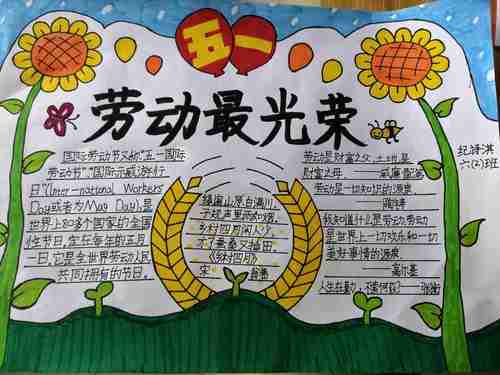 五一
劳动最光荣
国际劳动节又称“五一国际
劳动节”“国际示威游行
日”(Inter-national Workers
Day或者May Day),是
世界上80多个国家的全国
性节日,定在每年的五月
一日,它是全世界劳动人民
共同拥有的节日。
绿遍山原白满川,
子规声里雨如烟。
乡村四月闲人少,
才了蚕桑又插田
《乡村四月》
宋
劳动是财富之父,土地是
财富之母。——威廉·配第
劳动是一切知识的源泉
——陶铸
我知道什么是劳动,劳动
是世界上一切欢乐和一切
美好事情的源泉。
——高尔基
人生在勤,不索何获?——张衡
六(2)班